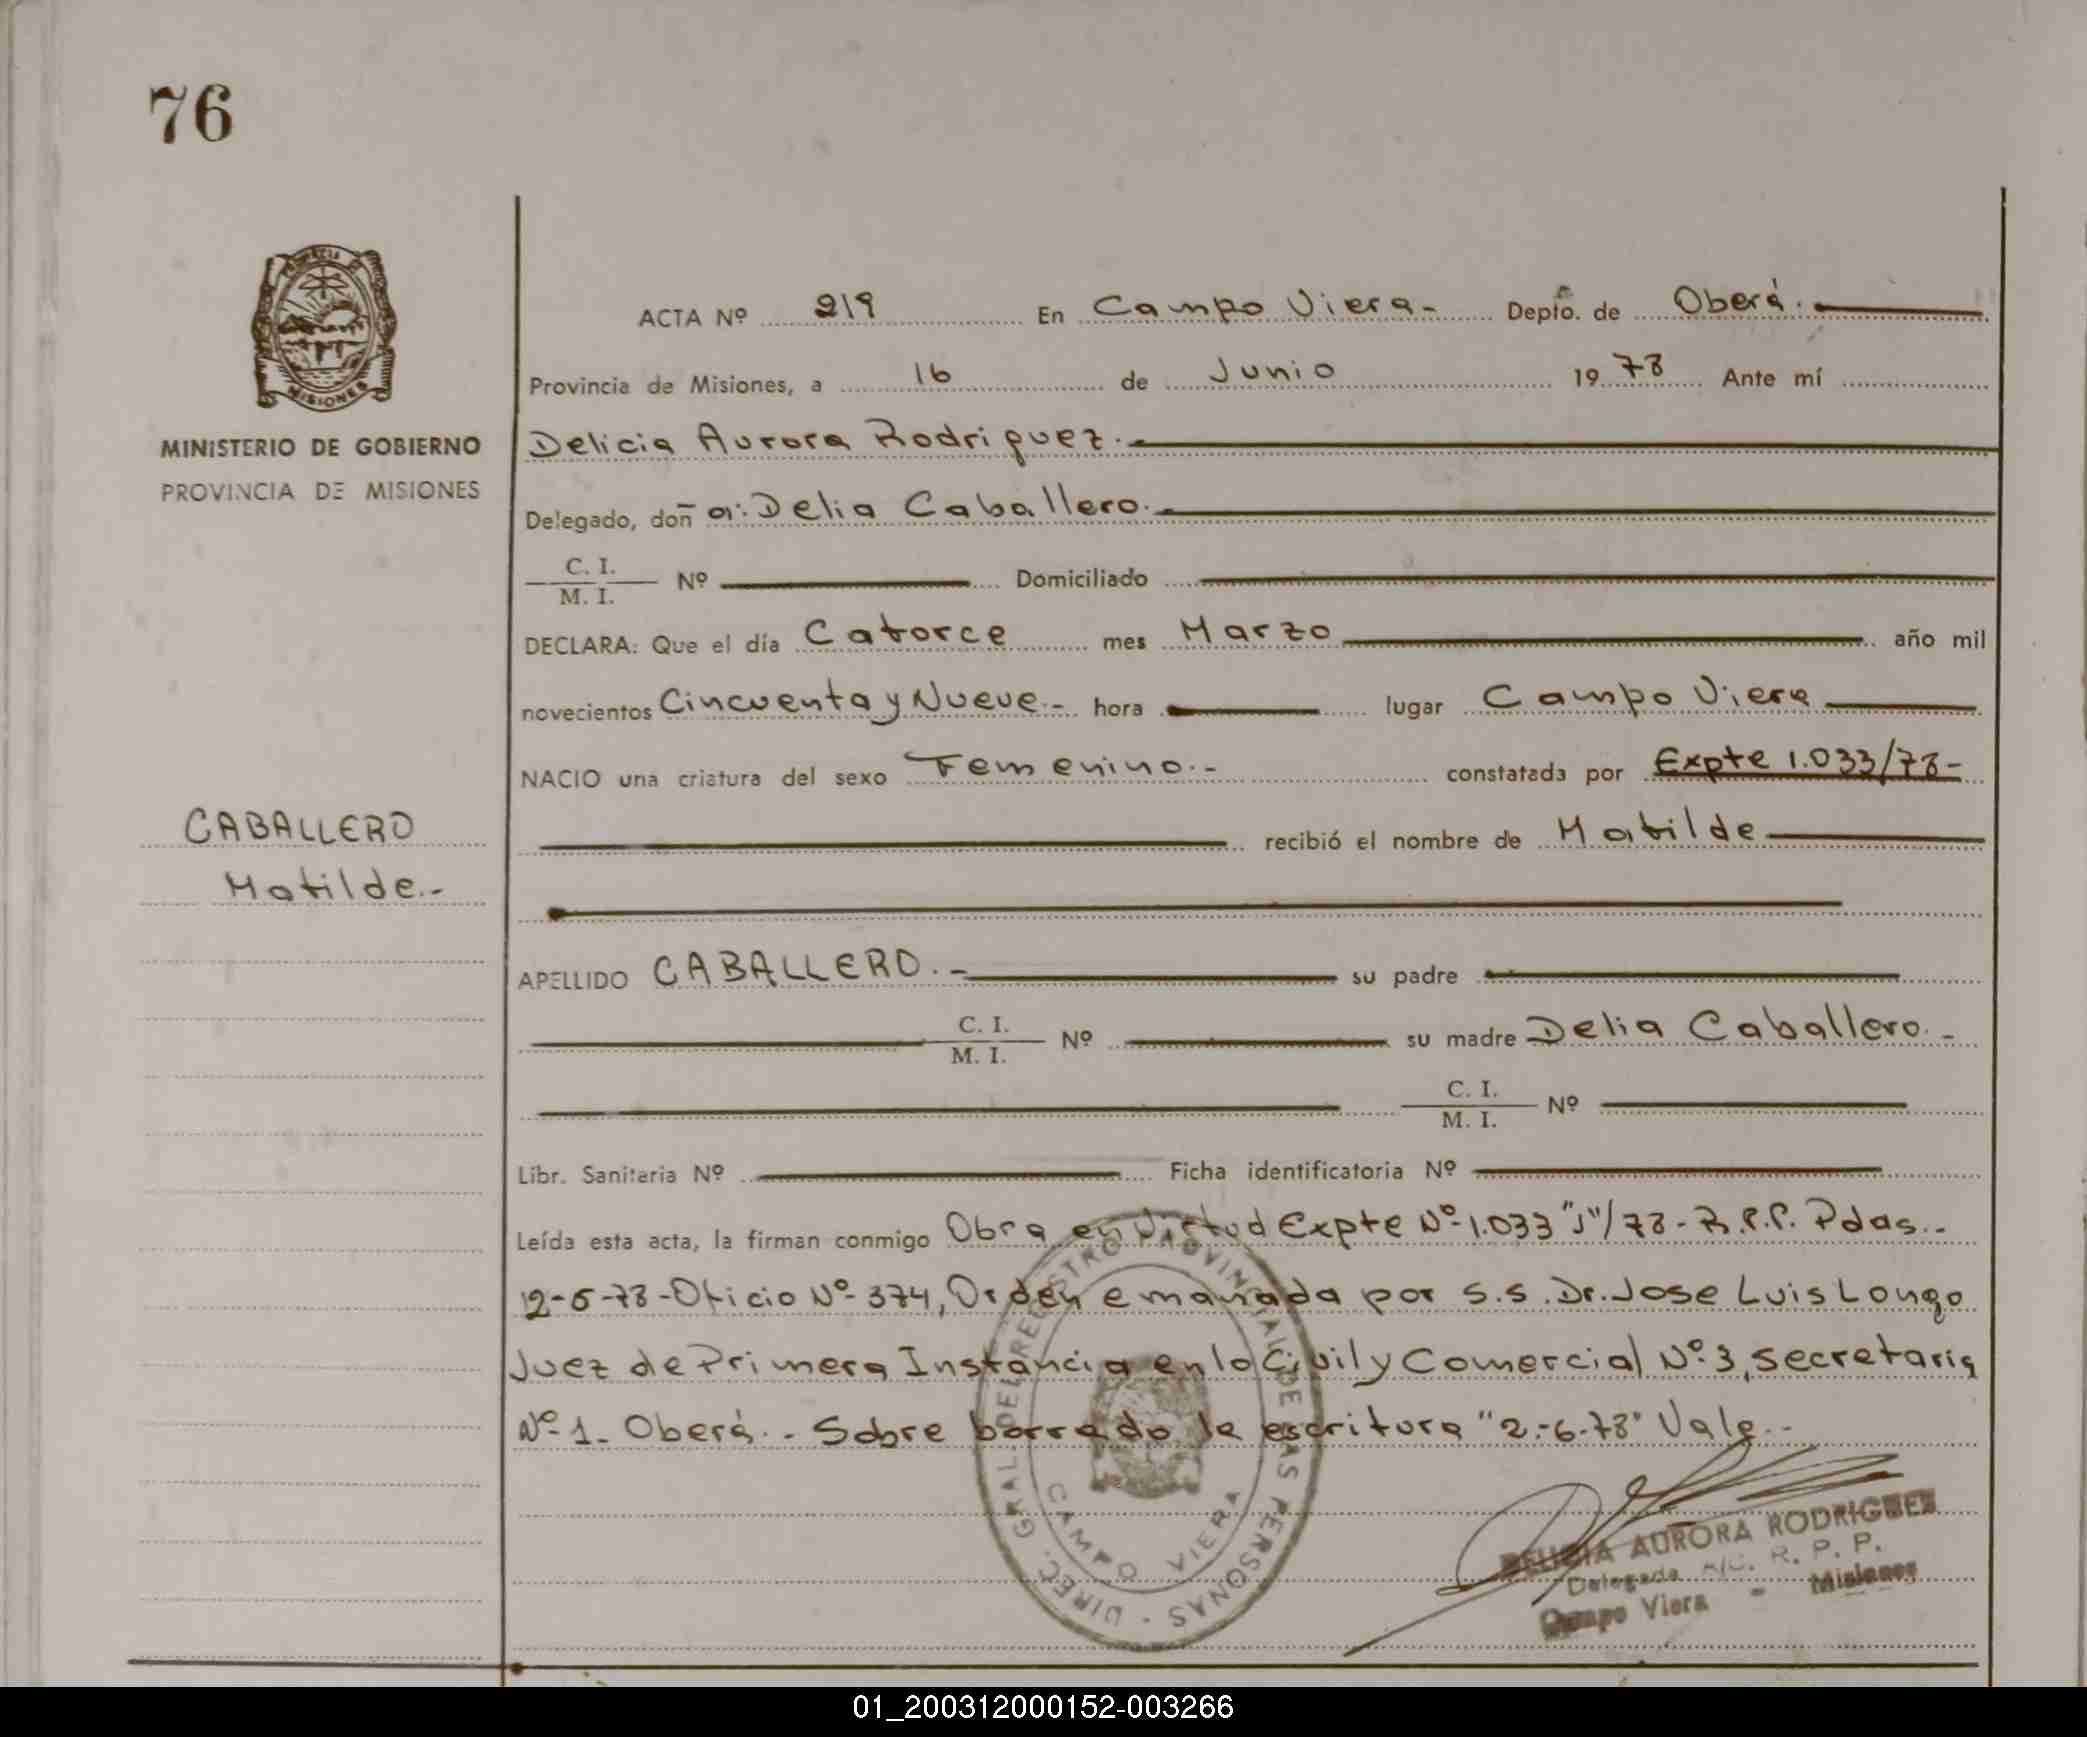 76
MISIONES
MINISTERIO DE GOBIERNO
PROVINCIA DE MISIONES
CABALLERO
Matilde.-
ACTA Nº 219 En Campo Viera- Depto. de Oberá.
Provincia de Misiones, a 16 de Junio 1978 Ante mí
Delicia Aurora Rodriguez.
Delegado, doñ a: Delia Caballero.
C. I.
M. I. Nº Domiciliado
DECLARA: Que el día Catorce mes Marzo año mil
novecientos Cincuenta y Nueve.- hora lugar Campo Viera
NACIO una criatura del sexo Femenino.- constatada por Expte 1.033/78-
recibió el nombre de Matilde
APELLIDO CABALLERO.- su padre
C. I.
M. I. Nº su madre Delia Caballero.-
C. I.
M. I. Nº
Libr. Sanitaria Nº Ficha identificatoria Nº
Leída esta acta, la firman conmigo Obra en Virtud Expte Nº-1.033 "J"/78- R.P.P. Pdas.-
2-6-78-Oficio Nº- 374, Orden emanada por S.S. Dr. Jose Luis Longo
Juez de Primera Instancia en lo Civil y Comercial Nº-3, secretaria
Nº-1- Oberá.- Sobre borrado la escritura "2.-6-78" Vale.-
DIREC. GRAL. DEL REGISTRO PROVINCIAL DE LAS PERSONAS
CAMPO VIERA
DELICIA AURORA RODRIGUEZ
Delegada A/C. R. P. P.
Campo Viera - Misiones
01_200312000152-003266